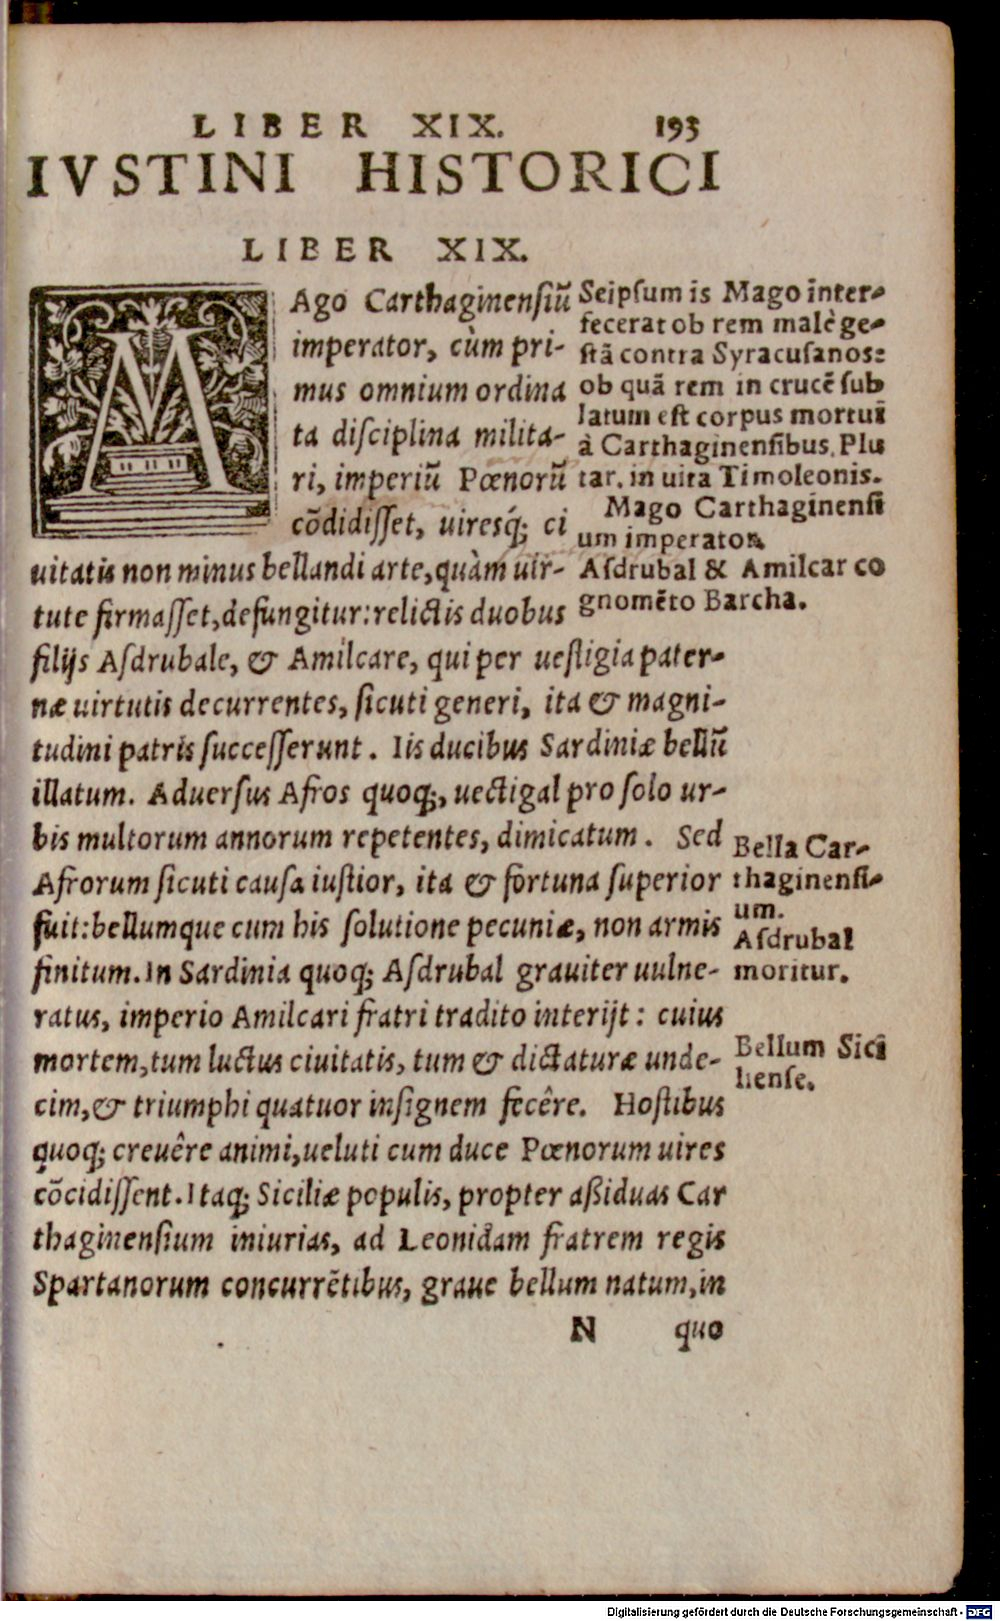 LIBER XIX. 193
IVSTINI HISTORICI
LIBER XIX.
MAgo Carthaginensiũ
imperator, cùm pri-
mus omnium ordina
ta disciplina milita-
ri, imperiũ Pœnorũ
cõdidisset, uiresq́; ci
uitatis non minus bellandi arte, quàm uir-
tute firmasset, defungitur: relictis duobus
filijs Asdrubale, & Amilcare, qui per uestigia pater-
næ uirtutis decurrentes, sicuti generi, ita & magni-
tudini patris successerunt. Iis ducibus Sardiniæ bellũ
illatum. Aduersus Afros quoq;, uectigal pro solo ur-
bis multorum annorum repetentes, dimicatum. Sed
Afrorum sicuti causa iustior, ita & fortuna superior
fuit: bellumque cum his solutione pecuniæ, non armis
finitum. In Sardinia quoq; Asdrubal grauiter uulne-
ratus, imperio Amilcari fratri tradito interijt: cuius
mortem, tum luctus ciuitatis, tum & dictaturæ unde-
cim, & triumphi quatuor insignem fecêre. Hostibus
quoq; creuêre animi, ueluti cum duce Pœnorum uires
cõcidissent. Itaq; Siciliæ populis, propter aßiduas Car
thaginensium iniurias, ad Leonidam fratrem regis
Spartanorum concurrẽtibus, graue bellum natum, in
N quo
Seipsum is Mago inter-
fecerat ob rem malè ge-
stã contra Syracusanos:
ob quã rem in crucẽ sub
latum est corpus mortui
à Carthaginensibus. Plu
tar. in uita Timoleonis.
Mago Carthaginensi
um imperator.
Asdrubal & Amilcar co
gnomẽto Barcha.
Bella Car-
thaginensi-
um.
Asdrubal
moritur.
Bellum Sici
liense.
Digitalisierung gefördert durch die Deutsche Forschungsgemeinschaft - DFG